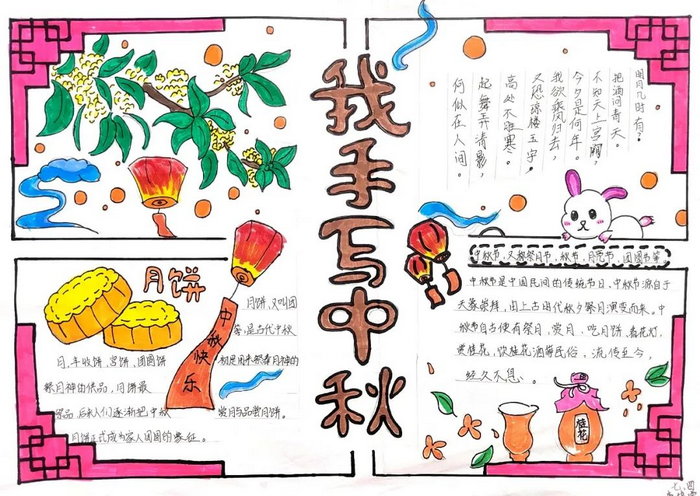 我手写中秋
明月几时有?
把酒问青天。
不知天上宫阙,
今夕是何年。
我欲乘风归去,
又恐琼楼玉宇。
高处不胜寒。
起舞弄清影,
何似在人间。
月饼
月饼,又叫团
月、丰收饼、宫饼、团圆饼
等,是古代中秋
祭月神的供品,月饼最
初是用来祭奉月神的
祭品,后来人们逐渐把中秋
赏月与品尝月饼。
月饼正式成为家人团圆的象征。
中秋快乐
中秋节,又称祭月节、秋节、月亮节、团圆节等
中秋节是中国民间的传统节日,中秋节源自于
天象崇拜,由上古时代秋夕祭月演变而来。中
秋节自古便有祭月、赏月、吃月饼、看花灯、
赏桂花、饮桂花酒等民俗,流传至今,
经久不息。
桂花